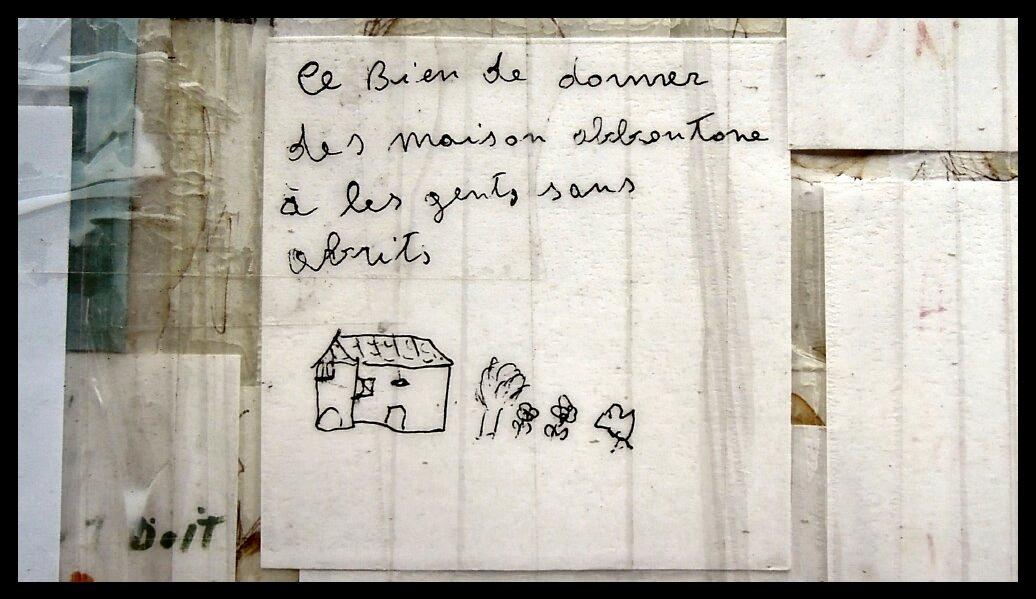 Ce Bien de donner
des maison abbontone
à les gents sans
abrits
DOIT